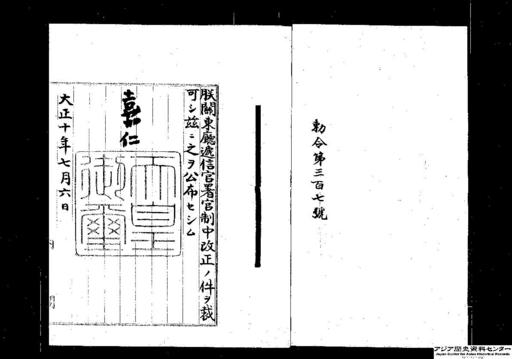 勅令第三百七號
朕關東廳遞信官署官制中改正ノ件ヲ裁
可シ茲ニ之ヲ公布セシム
嘉仁
天皇
御璽
大正十年七月六日
内
アジア歴史資料センター
Japan Center for Asian Historical Records